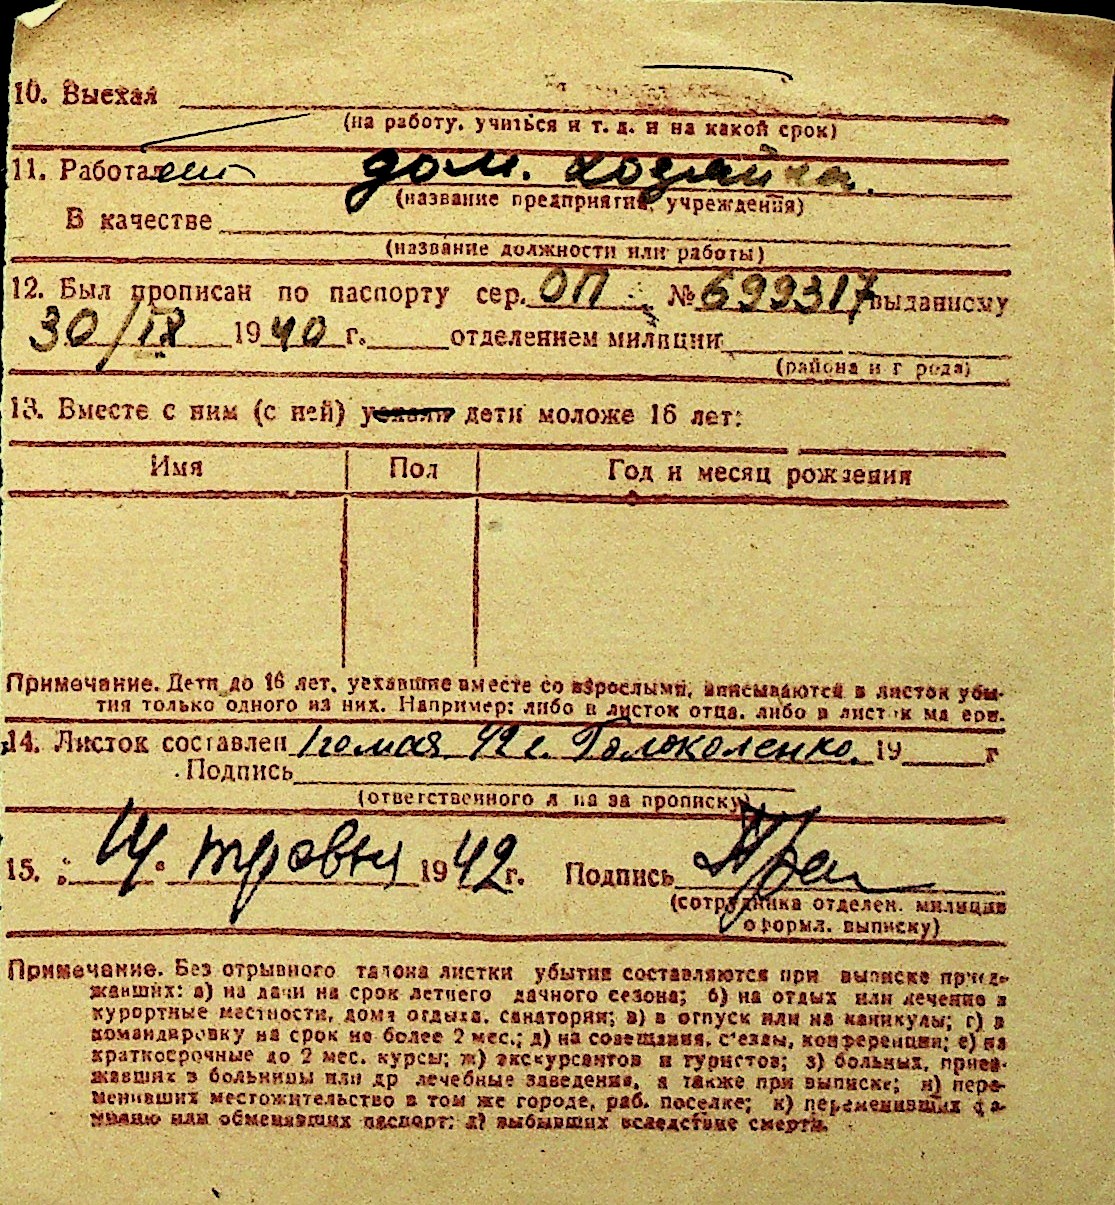 10. Выехал
(на работу, учиться и т. д. и на какой срок)
11. Работает дом. хозяйка.
(название предприятия, учреждения)
В качестве
(название должности или работы)
12. Был прописан по паспорту сер. ОП № 699317 выданному
30/IX 1940 г. отделением милиции
(района и г рода)
13. Вместе с ним (с ней) уехали дети моложе 16 лет:
Имя Пол Год и месяц рождения
Примечание. Дети до 16 лет, уехавшие вместе со взрослыми, вписываются в листок убы-
тия только одного из них. Например: либо в листок отца, либо в листок ма ери.
14. Листок составлен мая 42 г. Голоколенко. 19 г
Подпись
(ответственного л ца за прописку)
15. " 14 " травня 1942 г. Подпись
(сотрудника отделен. милиции
оформл. выписку)
Примечание. Без отрывного талона листки убытия составляются при выписке приез-
жавших: а) на дачи на срок летнего дачного сезона; б) на отдых или лечение в
курортные местности, дома отдыха, санатории; в) в отпуск или на каникулы; г) в
командировку на срок не более 2 мес.; д) на совещания, с'езды, конференции; е) на
краткосрочные до 2 мес. курсы; ж) экскурсантов и туристов; з) больных, приез-
жавших в больницы или др лечебные заведения, а также при выписке; и) пере-
менивших местожительство в том же городе, раб. поселке; к) переменивших фа-
милию или обменявших паспорт; л) выбывших вследствие смерти.